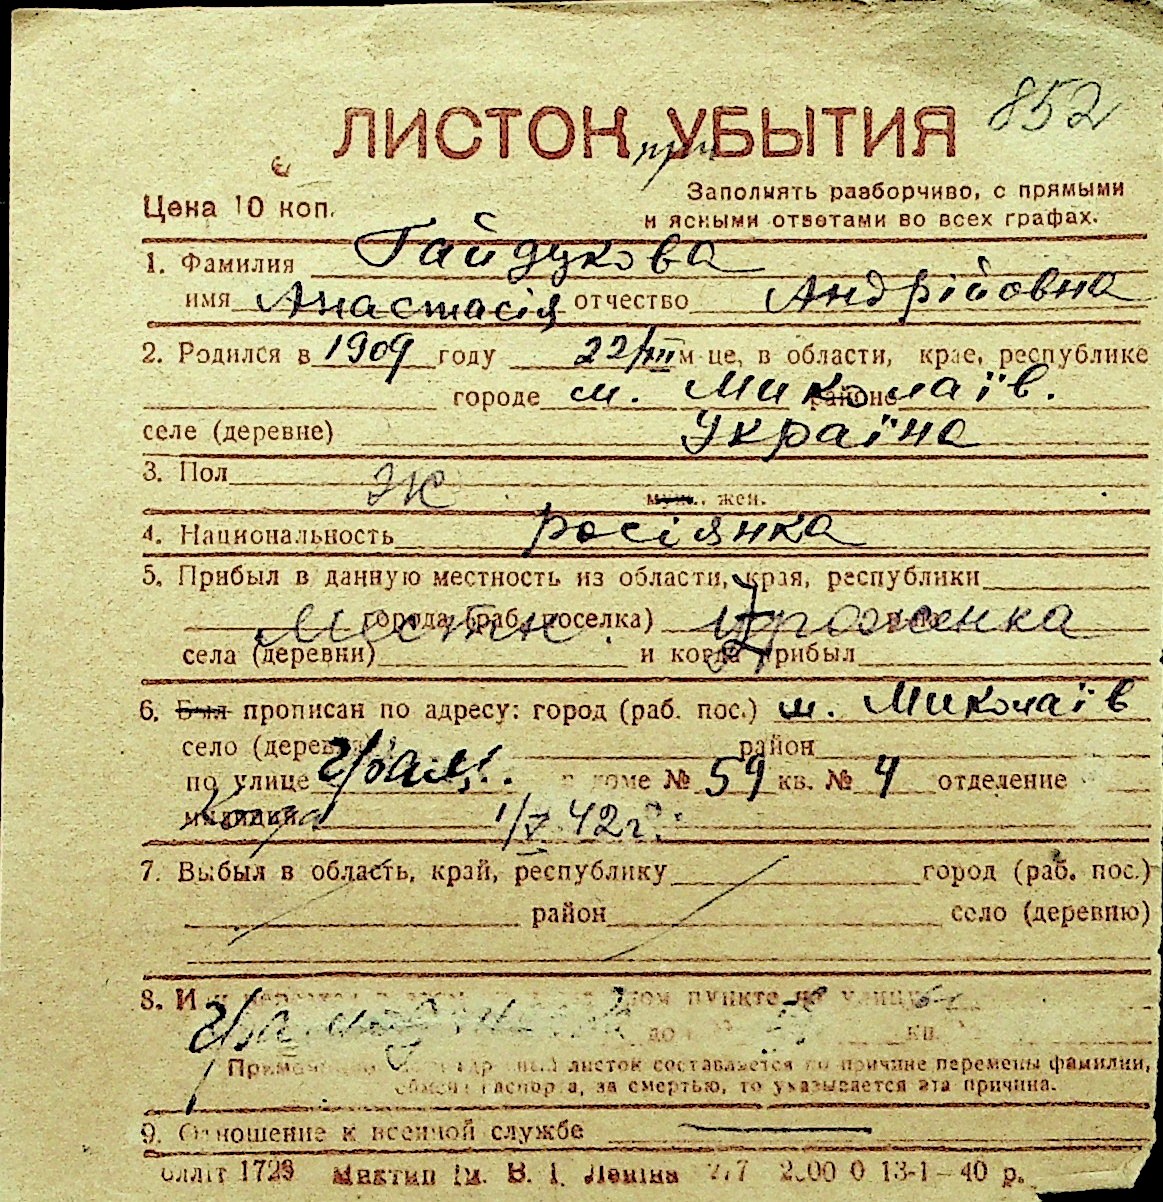 852
ЛИСТОК УБЫТИЯ
при
Цена 10 коп.
Заполнять разборчиво, с прямыми
и ясными ответами во всех графах.
1. Фамилия Гайдукова
имя Анастасія отчество Андрійовна
2. Родился в 1909 году 22/III м-це, в области, крае, республике
городе м. Миколаїв. районе
селе (деревне) Україна
3. Пол Ж муж. жен.
4. Национальность росіянка
5. Прибыл в данную местность из области, края, республики
города (раб. поселка) Местн. Уроженка
села (деревни) и когда прибыл
6. Был прописан по адресу: город (раб. пос.) м. Миколаїв
село (деревня) район
по улице в доме № 59 кв. № 4 отделение
милиции Когда 1/V 42 г.
7. Выбыл в область, край, республику город (раб. пос.)
район село (деревню)
8. пункте на улицу
до кв.
листок составляется по причине перемены фамилии,
обмена паспорта, за смертью, то указывается эта причина.
9. Отношение к военной службе —
1723 Миктип ім. В. І. Леніна 13-1—40 р.